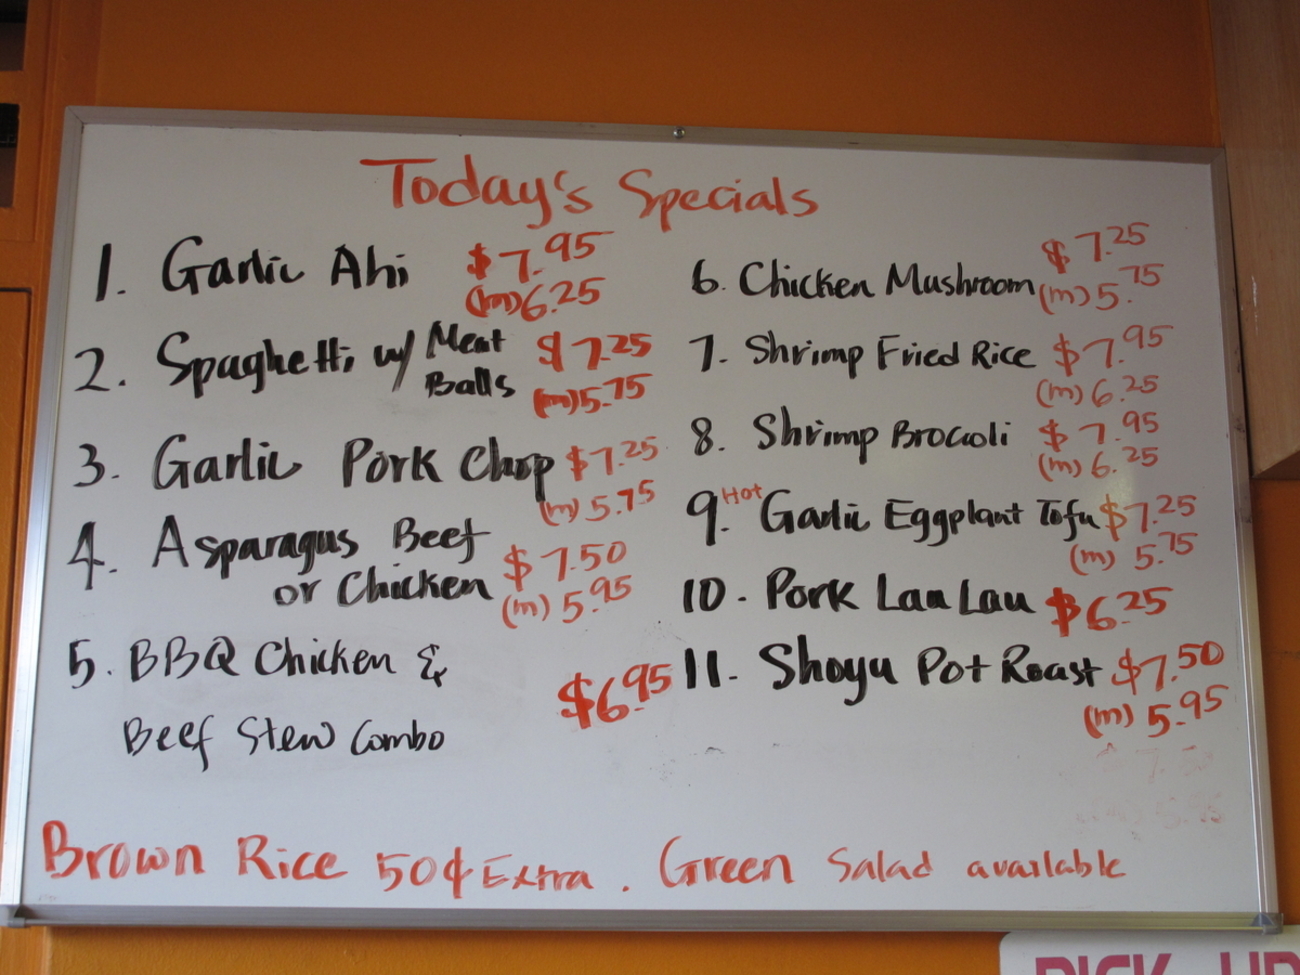 Today's Specials
1. Garlic Ahi $7.95
(m)6.25
2. Spaghetti w/ Meat Balls $7.25
(m)5.75
3. Garlic Pork Chop $7.25
(m)5.75
4. Asparagus Beef
or Chicken $7.50
(m)5.95
5. BBQ Chicken &
Beef Stew Combo $6.95
6. Chicken Mushroom $7.25
(m)5.75
7. Shrimp Fried Rice $7.95
(m)6.25
8. Shrimp Brocoli $7.95
(m)6.25
9. Hot Garlic Eggplant Tofu $7.25
(m)5.75
10. Pork Lau Lau $6.25
11. Shoyu Pot Roast $7.50
(m)5.95
Brown Rice 50¢ Extra. Green Salad available
PICK UP